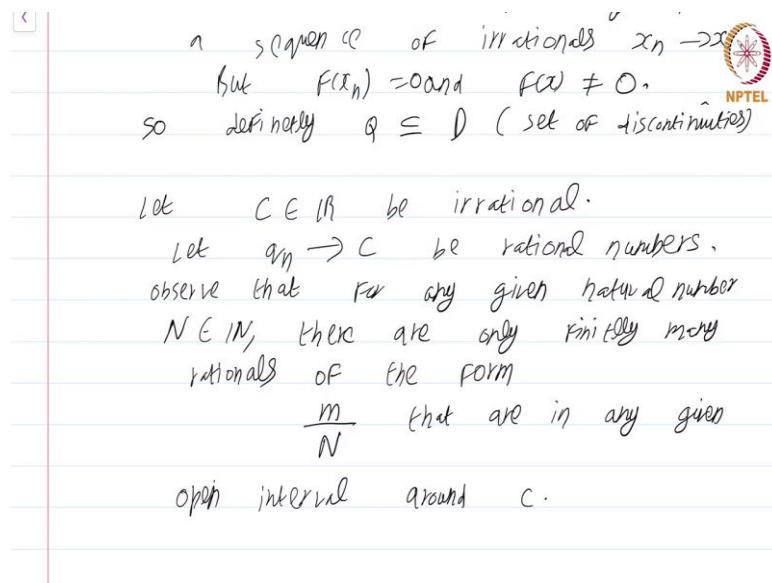 a sequence of irrationals xn → x
But F(xn) = 0 and F(x) ≠ 0.
NPTEL
so definetly Q ⊆ D (set of discontinuities)
Let C ∈ IR be irrational.
Let qn → C be rational numbers.
observe that For any given natural number
N ∈ IN, there are only Finitely many
rationals of the form
m/N that are in any given
open interval around c.